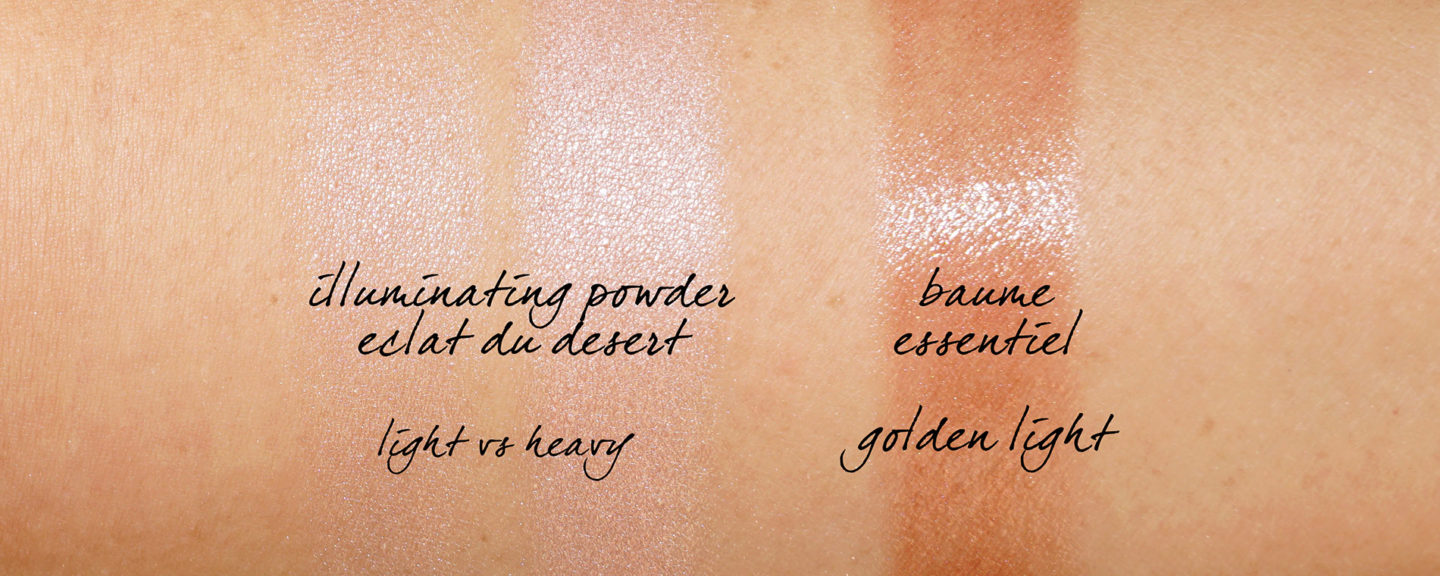 illuminating powder
eclat du desert
light vs heavy
baume
essentiel
golden light